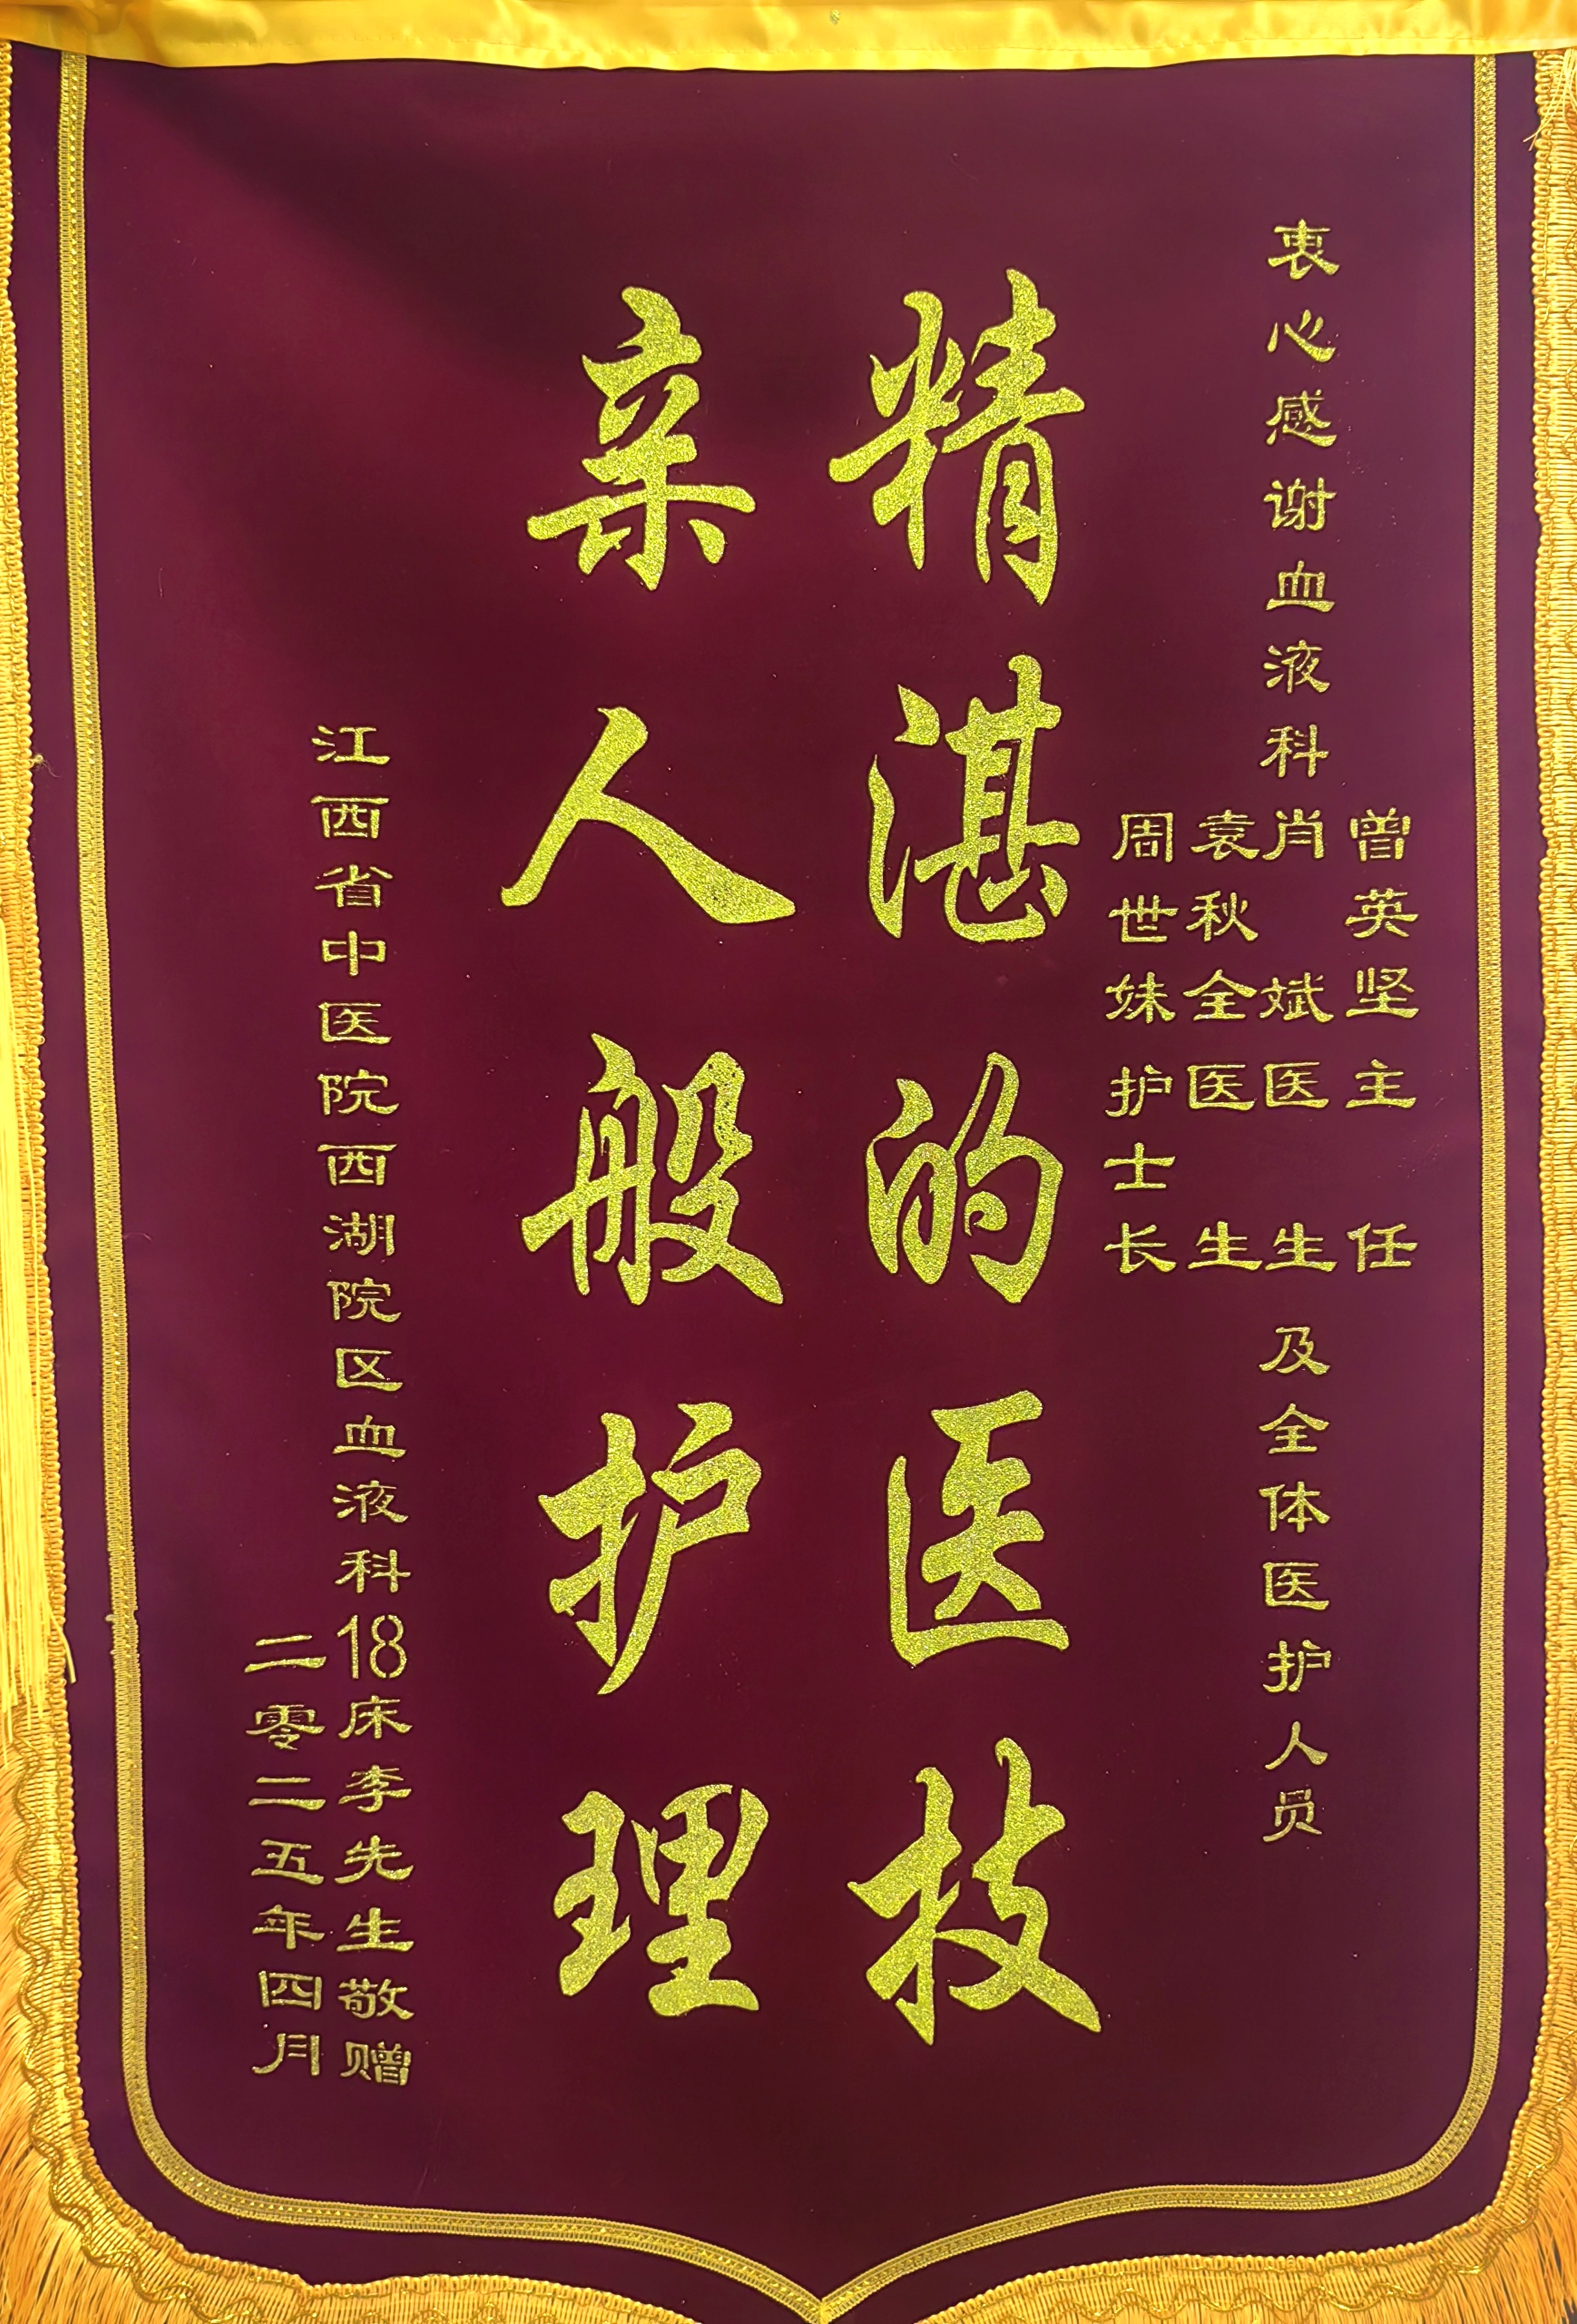 衷心感谢血液科
曾英坚主任
肖斌医生
袁秋全医生
周世妹护士长
及全体医护人员
精湛的医技
亲人般护理
江西省中医院西湖院区血液科18床李先生敬赠
二零二五年四月